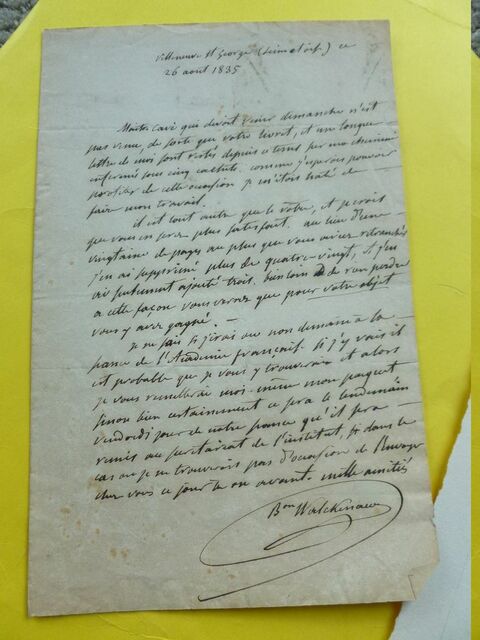 Villeneuve St George (Seine et oise) ce
26 aout 1835
qui devoit venir dimanche n'est
pas venu, de sorte que votre livret, et une longue
lettre de moi sont restés depuis ce tems sur ma cheminée
enfermés sous cinq cachets. comme j'esperois pouvoir
profiter de cette occasion je m'étois hâté de
faire mon travail.
il est tout autre que le vôtre, et je crois
que vous en serez plus satisfait. au lieu d'une
vingtaine de pages au plus que vous aviez retranchés
j'en ai supprimé plus de quatre-vingt, et j'en
ai seulement ajouté trois. bien loin de rien perdre
a cette façon vous verrez que pour votre objet
vous y avez gagné. —
je ne sais si j'irai ou non demain à la
séance de l'Académie française. Si j'y vais il
est probable que je vous y trouverai et alors
je vous remettrai moi-même mon paquet
sinon bien certainement ce sera le lendemain
vendredi jour de notre séance qu'il sera
remis au secrétariat de l'institut, si dans le
cas ou je ne trouverois pas d'occasion de l'envoyer
chez vous ce jour là ou avant. mille amitiés
Bon Walckenaer